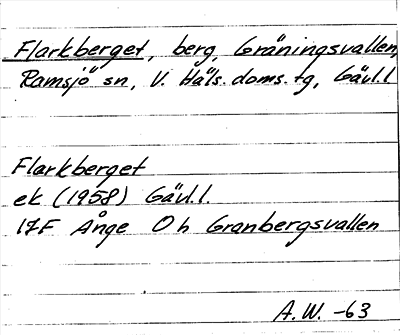 Flarkberget, berg, Gräningsvallen,
Ramsjö sn, V. Häls. doms. tg, Gävl.l
Flarkberget
ek (1958) Gävl.l.
17F Ånge Oh Granbergsvallen
A.W. -63